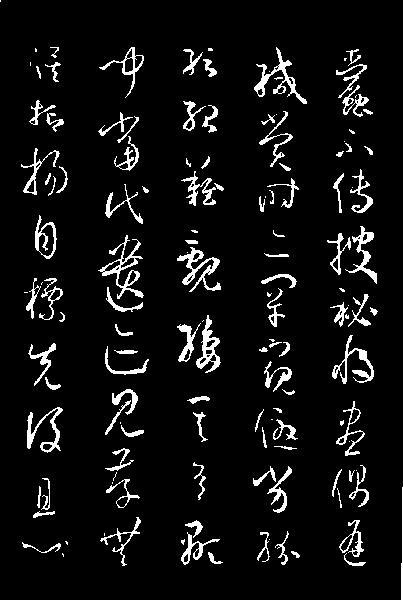 蠹不傳搜祕將盡偶逢
緘賞時亦罕窺優劣紛
紜殆難覼縷其有顯
聞當代遺迹見存無
俟抑揚自標先後且六